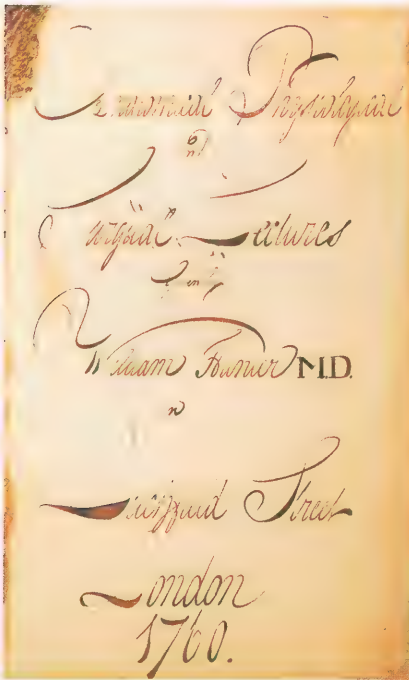 Anatomical Physiological
Surgical Lectures
William Hunter M.D.
Litchfield Street
London
1760.